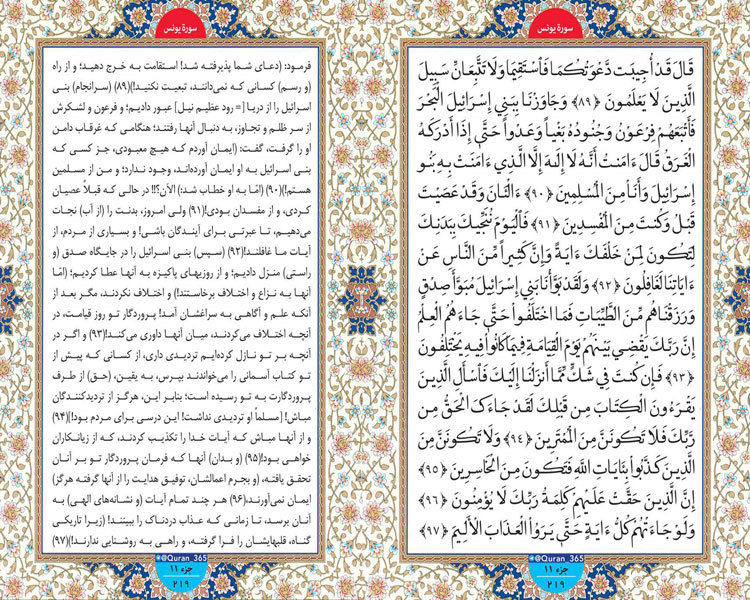 سورة یونس
قَالَ قَدْ أُجِيبَت دَّعْوَتُكُمَا فَاسْتَقِيمَا وَلَا تَتَّبِعَانِّ سَبِيلَ
الَّذِينَ لَا يَعْلَمُونَ ﴿٨٩﴾ وَجَاوَزْنَا بِبَنِي إِسْرَائِيلَ الْبَحْرَ
فَأَتْبَعَهُمْ فِرْعَوْنُ وَجُنُودُهُ بَغْياً وَعَدْواً حَتَّى إِذَا أَدْرَكَهُ
الْغَرَقُ قَالَ ءَامَنتُ أَنَّهُ لَا إِلَهَ إِلَّا الَّذِي ءَامَنَتْ بِهِ بَنُو
إِسْرَائِيلَ وَأَنَا مِنَ الْمُسْلِمِينَ ﴿٩٠﴾ ءَالْـَٔانَ وَقَدْ عَصَيْتَ
قَبْلُ وَكُنتَ مِنَ الْمُفْسِدِينَ ﴿٩١﴾ فَالْيَوْمَ نُنَجِّيكَ بِبَدَنِكَ
لِتَكُونَ لِمَنْ خَلْفَكَ ءَايَةً وَإِنَّ كَثِيراً مِّنَ النَّاسِ عَنْ
ءَايَاتِنَا لَغَافِلُونَ ﴿٩٢﴾ وَلَقَدْ بَوَّأْنَا بَنِي إِسْرَائِيلَ مُبَوَّأَ صِدْقٍ
وَرَزَقْنَاهُم مِّنَ الطَّيِّبَاتِ فَمَا اخْتَلَفُوا حَتَّى جَاءَهُمُ الْعِلْمُ
إِنَّ رَبَّكَ يَقْضِي بَيْنَهُمْ يَوْمَ الْقِيَامَةِ فِيمَا كَانُوا فِيهِ يَخْتَلِفُونَ
﴿٩٣﴾ فَإِن كُنتَ فِي شَكٍّ مِّمَّا أَنزَلْنَا إِلَيْكَ فَاسْأَلِ الَّذِينَ
يَقْرَءُونَ الْكِتَابَ مِن قَبْلِكَ لَقَدْ جَاءَكَ الْحَقُّ مِن
رَّبِّكَ فَلَا تَكُونَنَّ مِنَ الْمُمْتَرِينَ ﴿٩٤﴾ وَلَا تَكُونَنَّ مِنَ
الَّذِينَ كَذَّبُوا بِـَٔايَاتِ اللَّهِ فَتَكُونَ مِنَ الْخَاسِرِينَ ﴿٩٥﴾
إِنَّ الَّذِينَ حَقَّتْ عَلَيْهِمْ كَلِمَةُ رَبِّكَ لَا يُؤْمِنُونَ ﴿٩٦﴾
وَلَوْ جَاءَتْهُمْ كُلُّ ءَايَةٍ حَتَّى يَرَوُا الْعَذَابَ الْأَلِيمَ ﴿٩٧﴾
@Quran_365
جزء ۱۱
۲۱۹
سورة یونس
فرمود: (دعای شما پذیرفته شد! استقامت به خرج دهید؛ و از راه
(و رسم) کسانی که نمی‌دانند، تبعیت نکنید!)(۸۹) (سرانجام) بنی
اسرائیل را از دریا [= رود عظیم نیل] عبور دادیم؛ و فرعون و لشکرش
از سر ظلم و تجاوز، به دنبال آنها رفتند؛ هنگامی که غرقاب دامن
او را گرفت، گفت: (ایمان آوردم که هیچ معبودی، جز کسی که
بنی اسرائیل به او ایمان آورده‌اند، وجود ندارد؛ و من از مسلمین
هستم!)(۹۰) (امّا به او خطاب شد:) الآن؟!! در حالی که قبلاً عصیان
کردی، و از مفسدان بودی!(۹۱) ولی امروز، بدنت را (از آب) نجات
می‌دهیم، تا عبرتی برای آیندگان باشی! و بسیاری از مردم، از
آیات ما غافلند!(۹۲) (سپس) بنی اسرائیل را در جایگاه صدق (و
راستی) منزل دادیم؛ و از روزیهای پاکیزه به آنها عطا کردیم؛ (امّا
آنها به نزاع و اختلاف برخاستند!) و اختلاف نکردند، مگر بعد از
آنکه علم و آگاهی به سراغشان آمد! پروردگار تو روز قیامت، در
آنچه اختلاف می‌کردند، میان آنها داوری می‌کند!(۹۳) و اگر در
آنچه بر تو نازل کرده‌ایم تردیدی داری، از کسانی که پیش از
تو کتاب آسمانی را می‌خواندند بپرس، به یقین، (حق) از طرف
پروردگارت به تو رسیده است؛ بنابر این، هرگز از تردیدکنندگان
مباش! [مسلماً او تردیدی نداشت! این درسی برای مردم بود!](۹۴)
و از آنها مباش که آیات خدا را تکذیب کردند، که از زیانکاران
خواهی بود!(۹۵) (و بدان) آنها که فرمان پروردگار تو بر آنان
تحقق یافته، (و بجرم اعمالشان، توفیق هدایت را از آنها گرفته هرگز)
ایمان نمی‌آورند،(۹۶) هر چند تمام آیات (و نشانه‌های الهی) به
آنان برسد، تا زمانی که عذاب دردناک را ببینند! (زیرا تاریکی
گناه، قلبهایشان را فرا گرفته، و راهی به روشنایی ندارند!)(۹۷)
@Quran_365
جزء ۱۱
۲۱۹